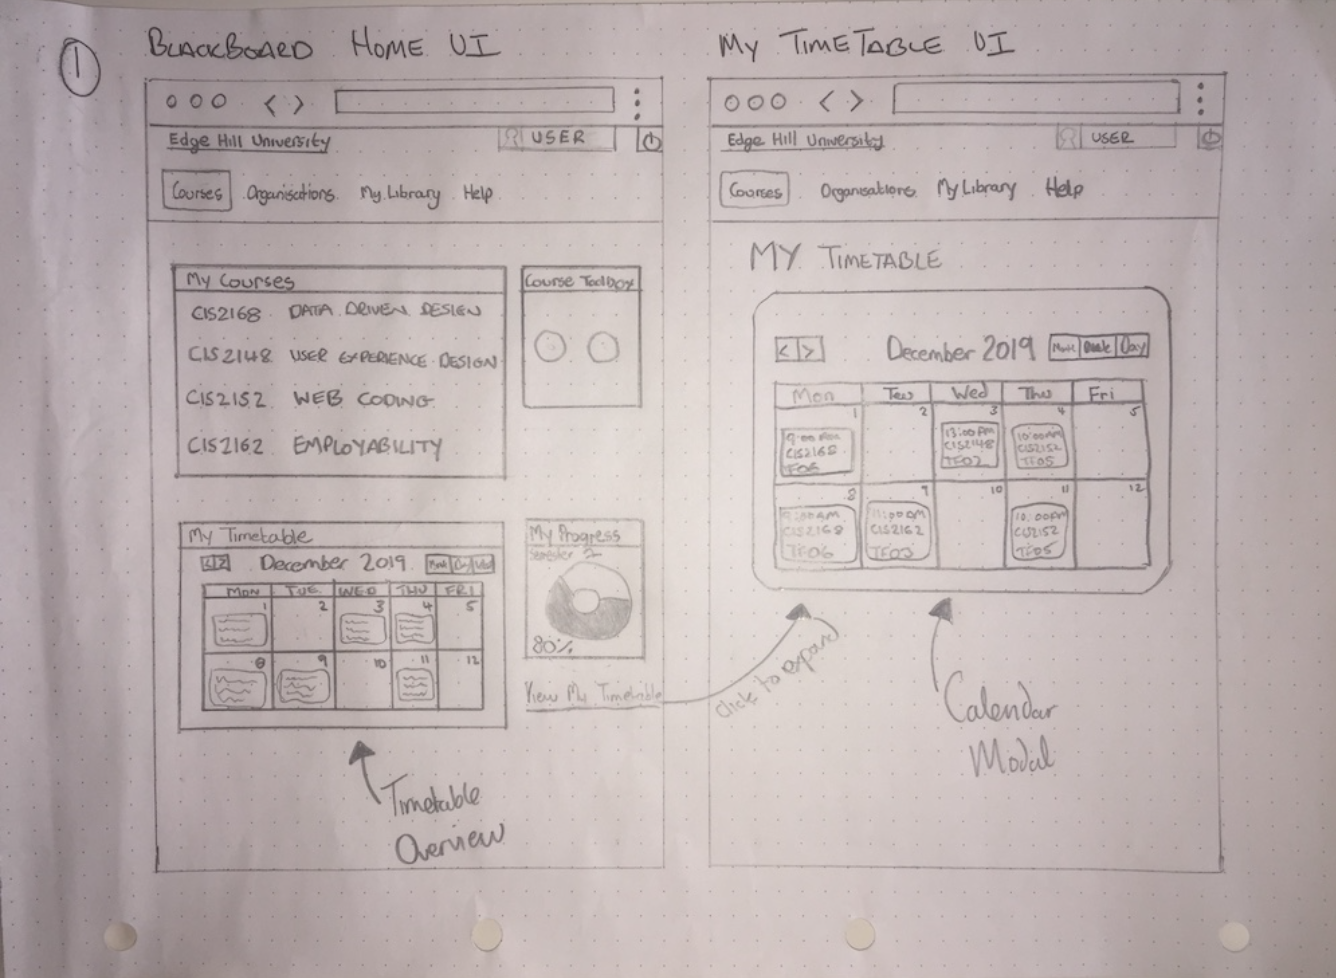 1
BLACKBOARD HOME UI
Edge Hill University
USER
Courses Organisations My Library Help
My Courses
CIS2168 DATA DRIVEN DESIGN
CIS2148 USER EXPERIENCE DESIGN
CIS2152 WEB CODING
CIS2162 EMPLOYABILITY
Course Toolbox
My Timetable
< > December 2019
MON TUE WED THU FRI
1 2 3 4 5
8 9 10 11 12
My Progress
Semester 2
80%
View My Timetable
click to expand
Timetable
Overview
MY TIMETABLE UI
Edge Hill University
USER
Courses Organisations My Library Help
MY TIMETABLE
< > December 2019 Day
Mon Tue Wed Thu Fri
1 2 3 4 5
9:00 AM 13:00 PM 10:00AM
CIS2168 CIS2148 CIS2152
TF06 TF02 TF05
8 9 10 11 12
9:00AM 11:00AM 10:00AM
CIS2168 CIS2162 CIS2152
TF06 TF03 TF05
Calendar
Modal